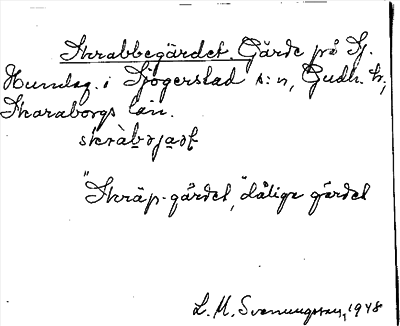 Skrabbegärdet. Gärde på Sj.
Humdag. i Sjögerstad s:n, Gudh. h,
Skaraborgs län.
"Skräp-gärdet," dålige gärdet
L. M. Svenungsson, 1948